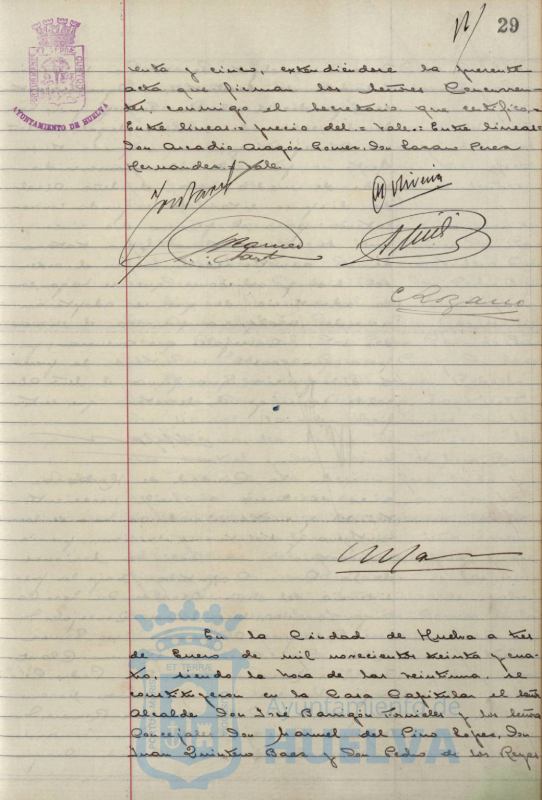 29
AYUNTAMIENTO DE HUELVA
renta y cinco, extendiéndose la presente
acta que firman los señores Concurren-
tes, conmigo el Secretario que certifico.=
Entre lineas.= precio del.= Vale.= Entre lineas=
Don Arcadio Aragón Gomez, Don Lazaro Perez
Hernandez. Vale
A. Oliveira
CLozano
En la Ciudad de Huelva a tres
de Enero de mil novecientos treinta y cua-
tro, siendo la hora de las veintiuna, se
constituyeron en la Casa Capitular el señor
Alcalde Don José Barrigón Fornieles y los señores
Concejales Don Manuel del Pino Lopez, Don
Juan Quintero Baez y Don Pedro de los Reyes
ET TERRA
Ayuntamiento de
HUELVA